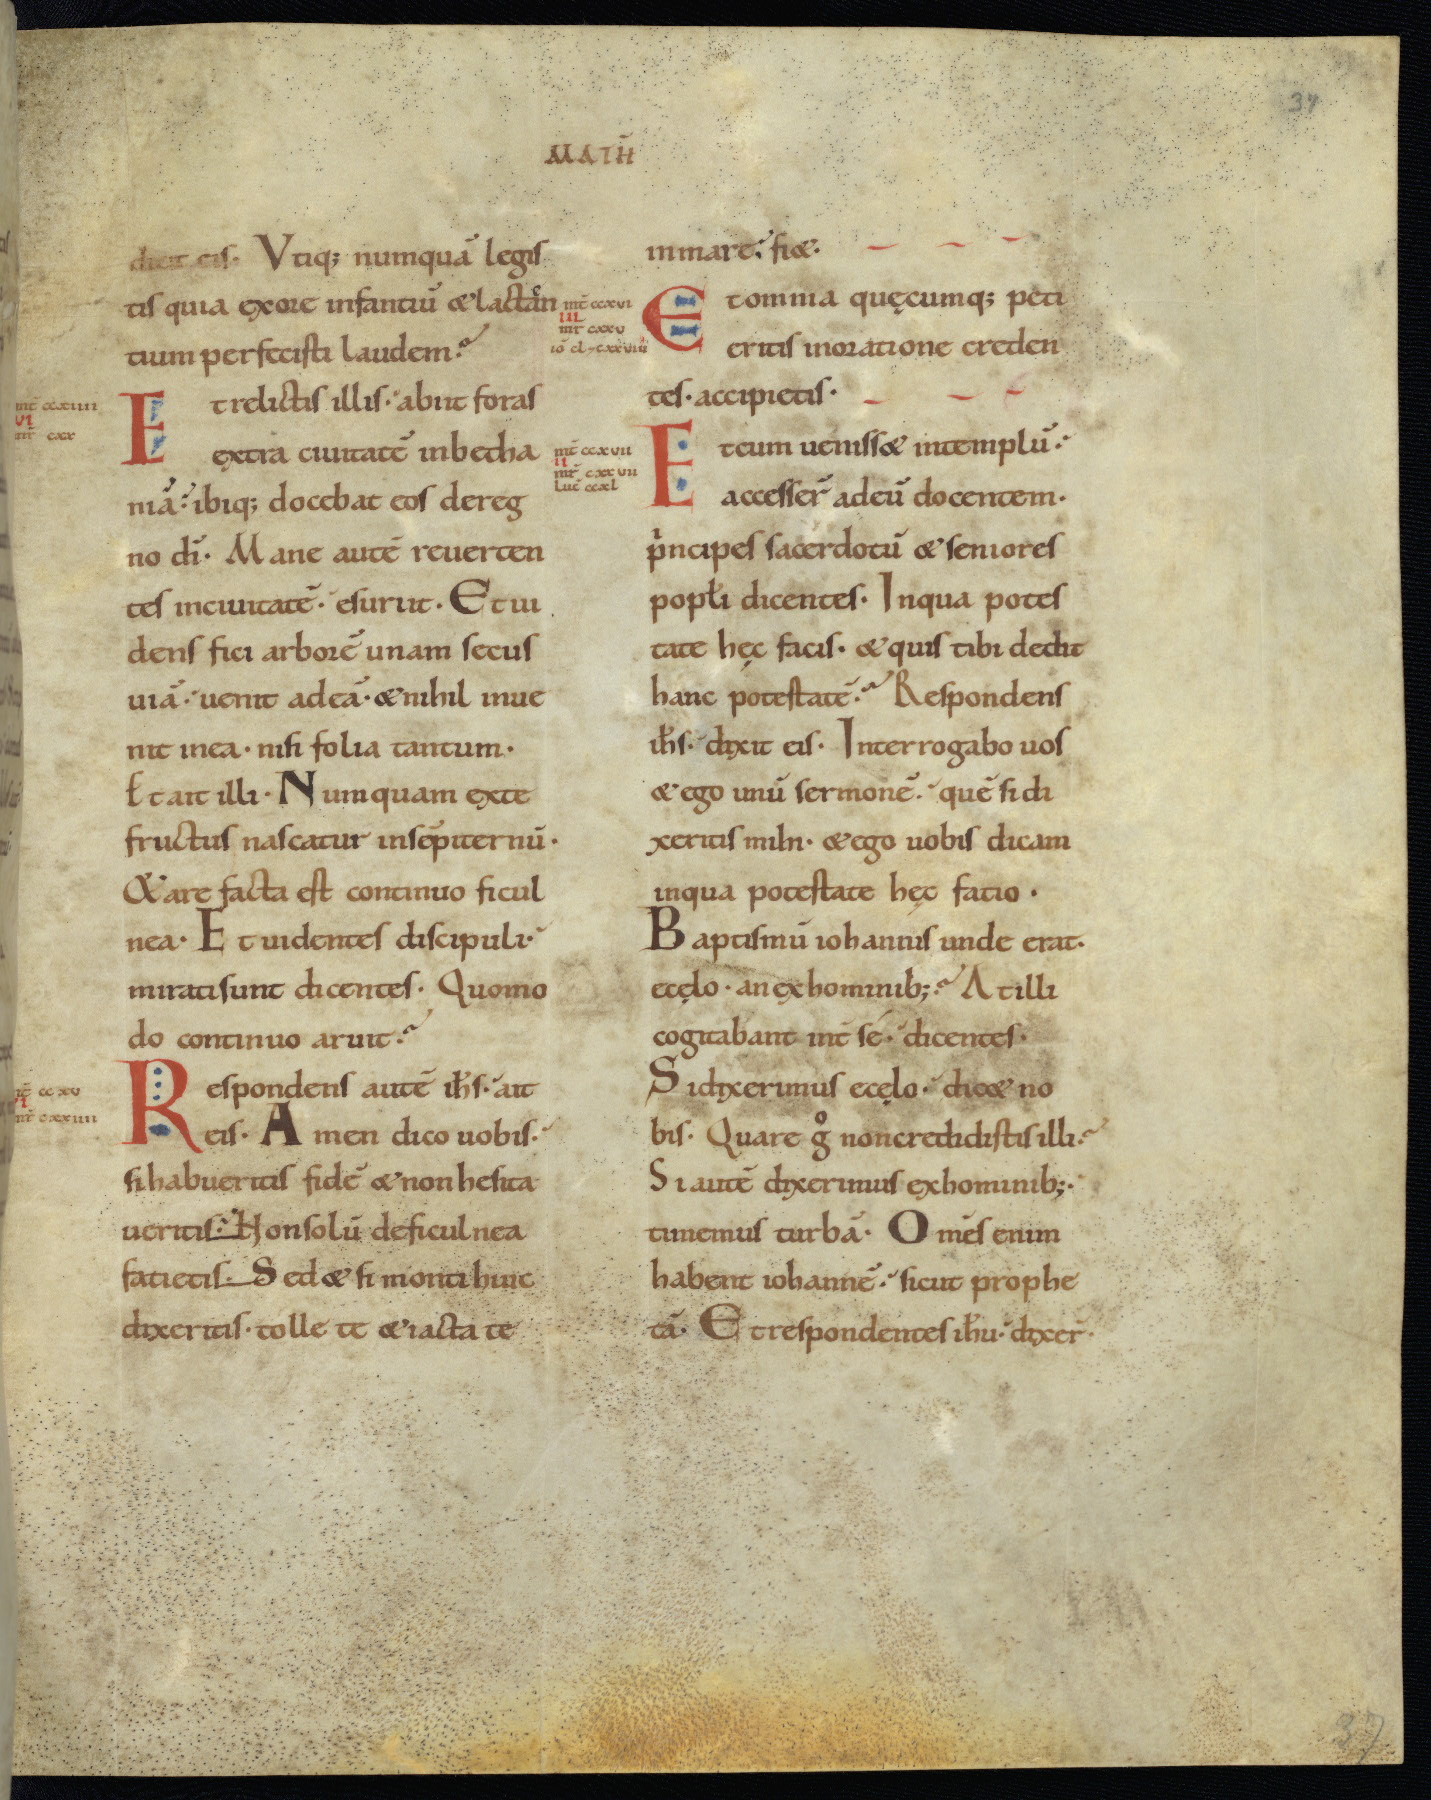 37
MATH̄
dicit eis· Vtiq; numquā legis
tis quia exore infantiū & lactan
tium perfecisti laudem?
Et relictis illis· abiit foras
extra ciuitatē inbetha
niā· ibiq; docebat eos dereg
no dī· Mane autē reuerten
tes inciuitatē· esuriit· Et ui
dens fici arborē unam secus
uiā· uenit adeā· & nihil inue
nit inea· nisi folia tantum·
Et ait illi· Numquam exte
fructus nascatur insēpiternū·
& arefacta est continuo ficul
nea· Et uidentes discipuli·
miratisunt dicentes· Quomo
do continuo aruit?
Respondens autē ih̄s· ait
eis· Amen dico uobis·
si habueritis fidē & non hesita
ueritis· Non solū deficulnea
fatietis· Sed & si monti huic
dixeritis· tolle te & iacta te
inmare· fi&·
Et omnia quęcumq; peti
eritis inoratione creden
tes· accipietis·
Et cum ueniss& intemplū·
accesser̄ adeū docentem·
p̍ncipes sacerdotū & seniores
popłi dicentes· Inqua potes
tate hęc facis· & quis tibi dedit
hanc potestatē? Respondens
ih̄s· dixit eis· Interrogabo uos
& ego unū sermonē· quē si di
xeritis mihi· & ego uobis dicam
inqua potestate hęc fatio·
Baptismū iohannis unde erat·
ecęlo· an exhominib;? At illi
cogitabant int̄ sé· dicentes·
Si dixerimus ecęlo· dic& no
bis· Quare g̊ noncredidistis illi?
Si autē dixerimus exhominib;·
timemus turbā· Om̄s enim
habent iohannē· sicut prophe
tā· Et respondentes ih̄u· dixer̄·
mt̄ ccxiiii
VI
mr̄ cxx
mt̄ ccxv
VI
mr̄ cxxiiii
mt̄ ccxvi
III
mr̄ cxxv
iō cl-cxxviii
mt̄ ccxvii
II
mr̄ cxxvii
Luc̄ ccxl
37